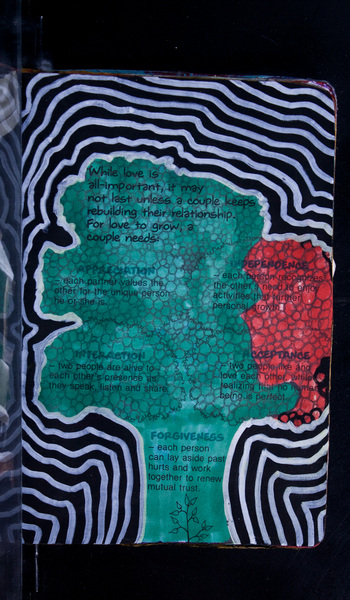 While love is
all-important, it may
not last unless a couple keeps
rebuilding their relationship.
For love to grow, a
couple needs:
APPRECIATION
– each partner values the
other for the unique person
he or she is.
INDEPENDENCE
– each person recognizes
the other's need to enjoy
activities that further
personal growth.
INTERACTION
– two people are alive to
each other's presence as
they speak, listen and share.
ACCEPTANCE
– two people like and
love each other, while
realizing that no human
being is perfect.
FORGIVENESS
– each person
can lay aside past
hurts and work
together to renew
mutual trust.